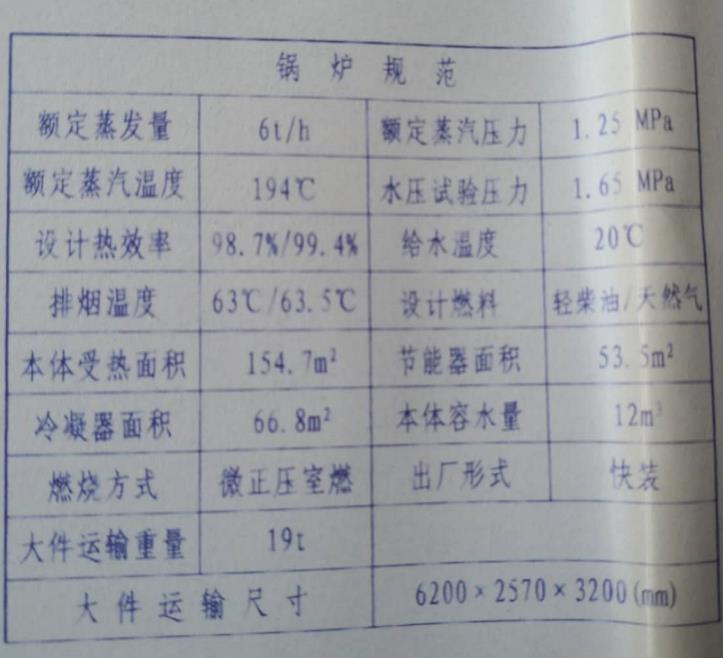 锅炉规范
额定蒸发量 6t/h 额定蒸汽压力 1.25 MPa
额定蒸汽温度 194℃ 水压试验压力 1.65 MPa
设计热效率 98.7%/99.4% 给水温度 20℃
排烟温度 63℃/63.5℃ 设计燃料 轻柴油/天然气
本体受热面积 154.7m² 节能器面积 53.5m²
冷凝器面积 66.8m² 本体容水量 12m³
燃烧方式 微正压室燃 出厂形式 快装
大件运输重量 19t
大件运输尺寸 6200×2570×3200(mm)